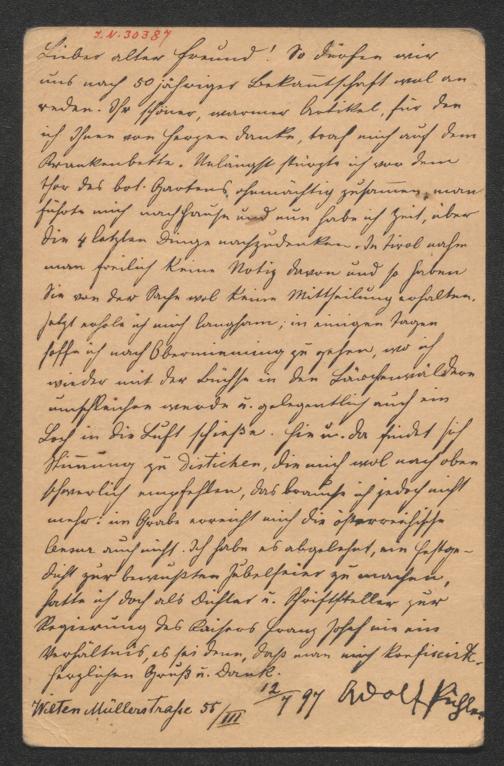 J.N. 30387
Lieber alter Freund! So dürfen wir
uns nach 50jähriger Bekanntschaft wol an
reden. Ihr schöner, warmer Artikel, für den
ich Ihnen von Herzen danke, traf mich auf dem
Krankenbette. Unlängst stürzte ich vor dem
Thor des bot. Gartens ohnmächtig zusammen, man
führte mich nach Hause und nun habe ich Zeit, über
die 4 letzten Dinge nachzudenken. In Tirol nahm
man freilich keine Notiz davon und so haben
Sie von der Sache wol keine Mittheilung erhalten.
Jetzt erhole ich mich langsam; in einigen Tagen
hoffe ich nach Obermieming zu gehen, wo ich
wieder mit der Büchse in den Lärchenwäldern
umschleichen werde u. gelegentlich auch ein
Loch in die Luft schieße. Hie u. da findet sich
Stimmung zu Distichen, die mich wol nach oben
schwerlich empfehlen, das brauche ich jedoch nicht
mehr: im Grabe erreicht mich die österreichische
Censur auch nicht. Ich habe es abgelehnt, ein Festge-
dicht zur bewußten Jubelfeier zu machen,
hatte ich doch als Dichter u. Schriftsteller zur
Regierung des Kaisers Franz Josef nie ein
Verhältnis, es sei denn, daß man mich konfiscirte.
Herzlichen Gruß u. Dank.
Wilten Müllerstraße 55/III 12/ 97 Adolf Pichler